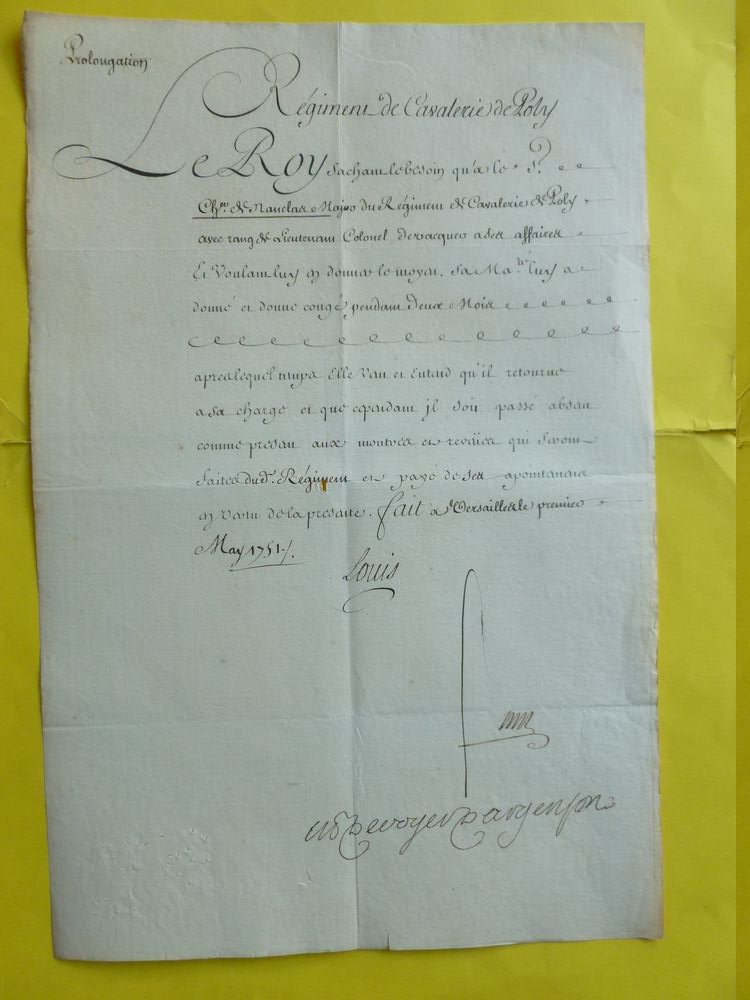 Prolongation
Régiment de Cavalerie de Poly
Le Roy sachant le besoin qu'a le S.r
Ch.er de Nanclas Major du Régiment de Cavalerie de Poly
avec rang de Lieutenant Colonel de vacquer a ses affaires
Et Voulant luy en donner le moyen. Sa Ma.té luy a
donné et donne congé pendant Deux Mois
apres lequel temps Elle Veut et Entend qu'il retourne
a sa charge et que cependant jl soit passé absent
comme present aux montres et reveües qui seront
faites dud. Régiment et payé de ses apointemens
en Vertu de la presente. fait a Versailles le premier
May 1751./.
Louis
M P De voyer D'argenson